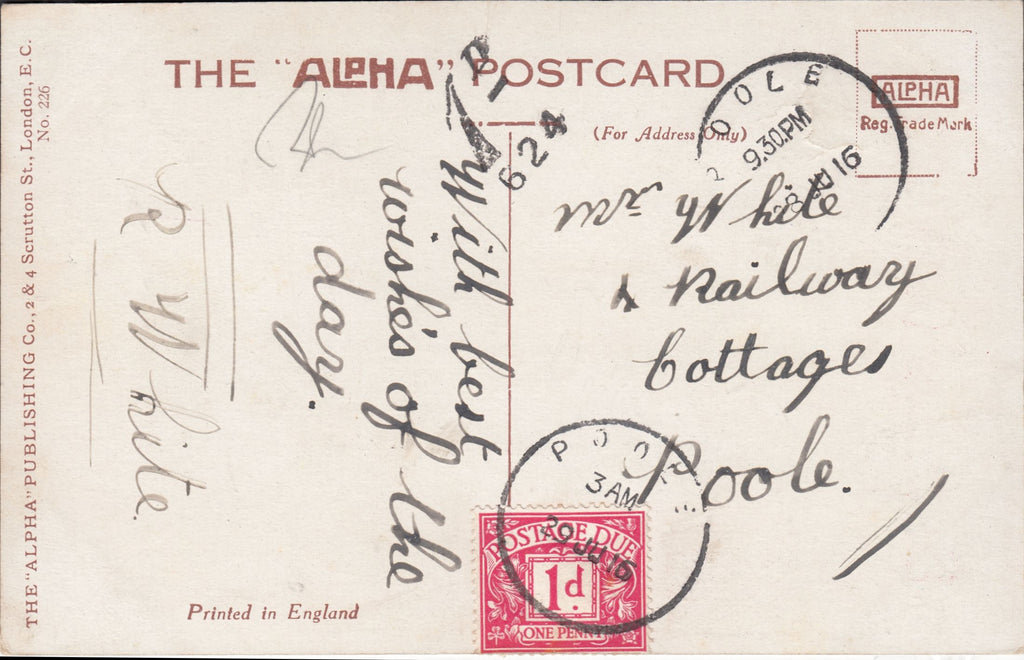 THE "ALPHA" POSTCARD
(For Address Only)
ALPHA
Reg. Trade Mark
POOLE
9.30PM
28 JU 16
1D
624
Mrs White
1 Railway
Cottages
Poole.
With best
wishe's of the
day.
R White.
POOLE
3 AM
29 JU 16
POSTAGE DUE
1d.
ONE PENNY
Printed in England
THE "ALPHA" PUBLISHING Co., 2 & 4 Scrutton St., London, E.C.
No. 226